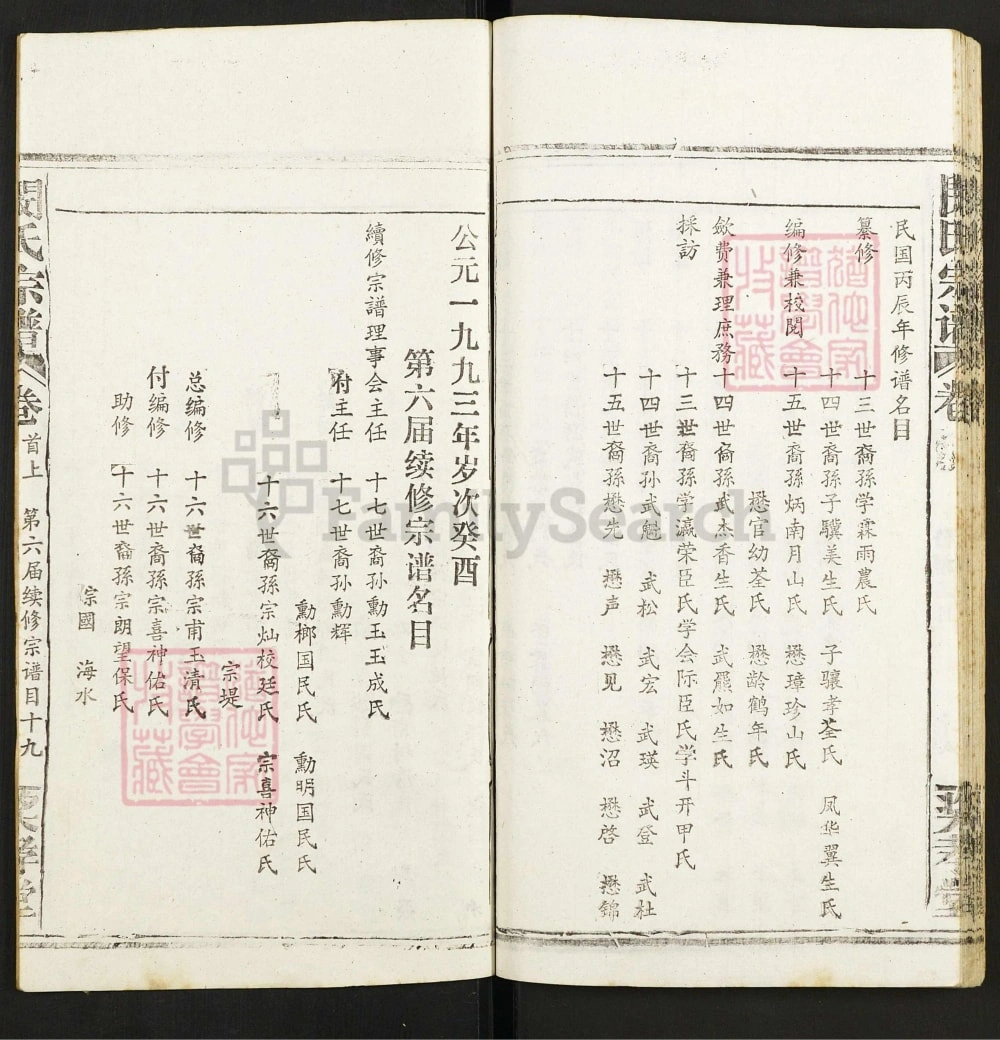 民国丙辰年修谱名目
纂修 十三世裔孫学霖雨農氏
十四世裔孫子驥美生氏 子骧孝荃氏 凤华翼生氏
编修兼校閲 十五世裔孫炳南月山氏 懋璋珍山氏
懋官幼荃氏 懋龄鹤年氏
歛费兼理庶務 十四世裔孫武杰香生氏 武羆如生氏
採訪 十三世裔孫学瀛荣臣氏 学会际臣氏 学斗开甲氏
十四世裔孙武魁 武松 武宏 武瑛 武登 武杜
十五世裔孫懋先 懋声 懋见 懋沼 懋啓 懋錦
公元一九九三年岁次癸酉
第六届续修宗谱名目
續修宗譜理事会主任 十七世裔孙勳玉玉成氏
付主任 十七世裔孙勳辉
勳榔国民氏 勳明国民氏
十六世裔孫宗灿校廷氏 宗喜神佑氏
宗堤
总编修 十六世裔孫宗甫玉清氏
付编修 十六世裔孫宗喜神佑氏
助修 十六世裔孫宗朗望保氏
宗國 海水
氏宗譜 卷首上 第六届续修宗谱目十九 堂
氏宗谱 卷 堂
FamilySearch